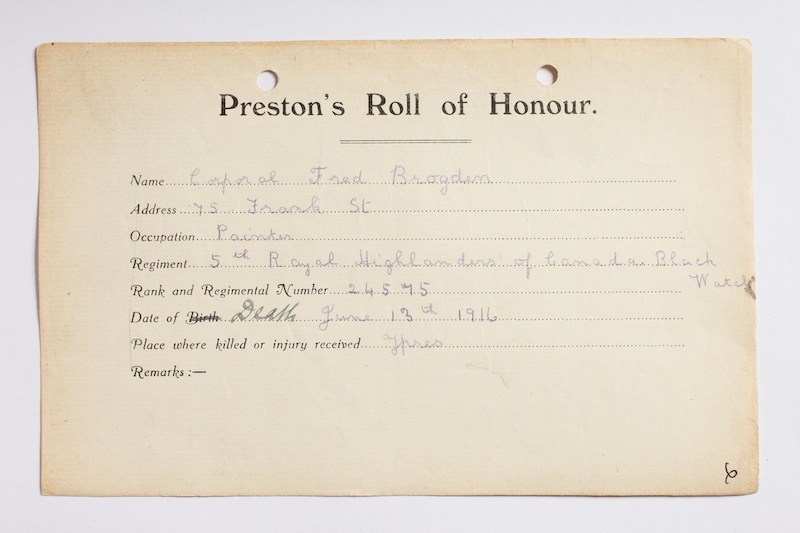 Preston's Roll of Honour.
Name Corporal Fred Brogden
Address 75 Frank St
Occupation Painter
Regiment 5th Royal Highlanders of Canada. Black
Watch
Rank and Regimental Number 24575
Date of Birth Death June 13th 1916
Place where killed or injury received Ypres
Remarks :—